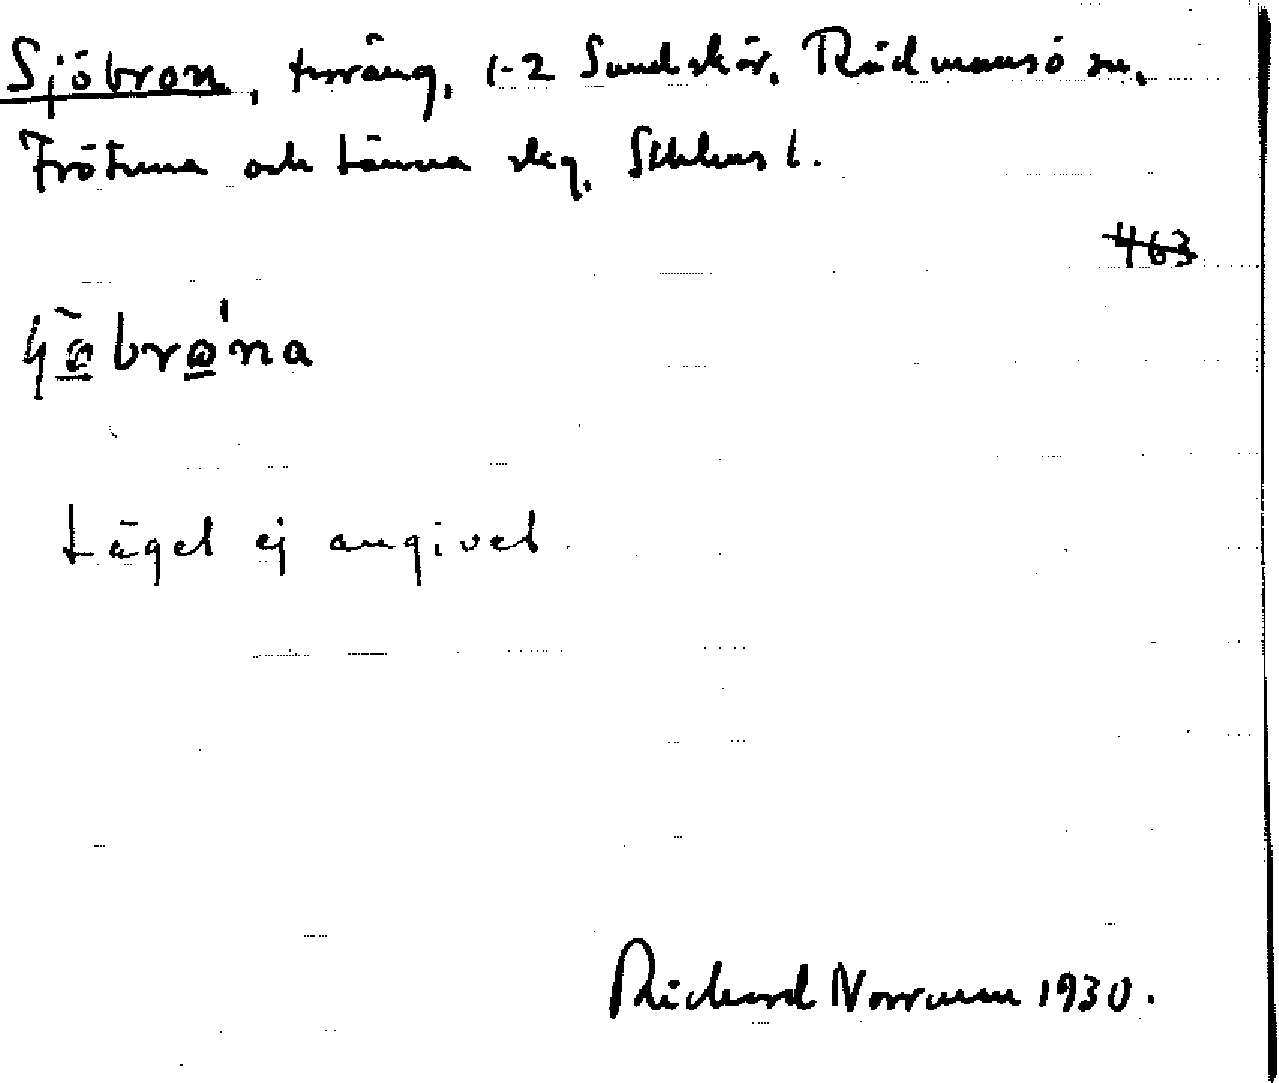 Sjöbron, terräng, 1-2 Sundskär, Rådmansö sn,
Frötuna och Länna skg, Sthlms l.
463
Läget ej angivet
Richard Norrman 1930.